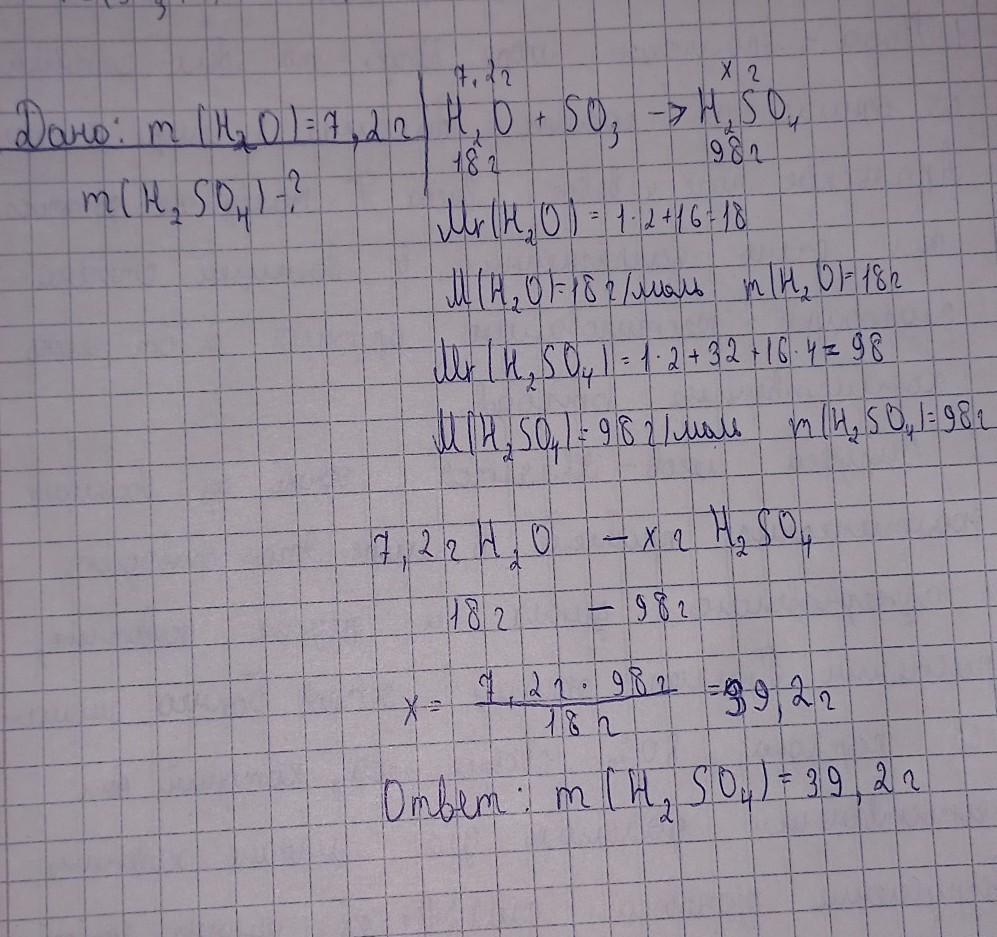 7,2г x г
Дано: m(H₂O)=7,2г H₂O + SO₃ → H₂SO₄
18г 98г
m(H₂SO₄)-?
Mr(H₂O) = 1·2+16=18
M(H₂O)=18г/моль m(H₂O)=18г
Mr(H₂SO₄)=1·2+32+16·4=98
M(H₂SO₄)=98г/моль m(H₂SO₄)=98г
7,2г H₂O – x г H₂SO₄
18г – 98г
x = 7,2г·98г / 18г = 39,2г
Ответ: m(H₂SO₄)=39,2г